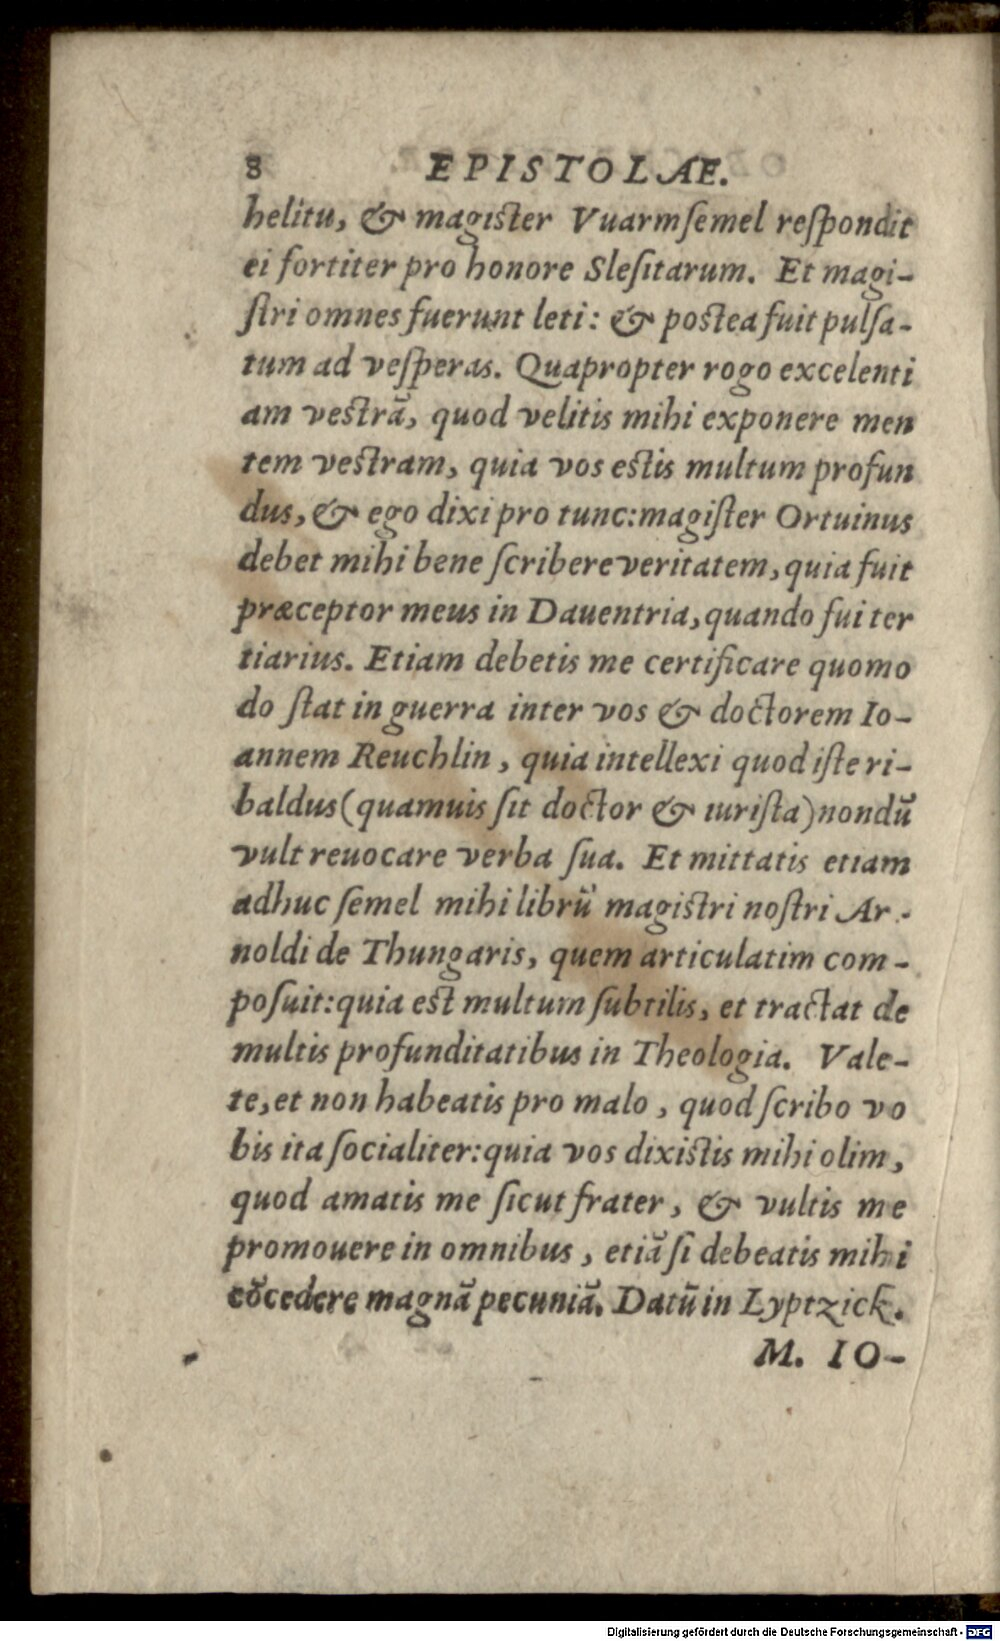 8 EPISTOLAE.
helitu, & magister Vuarmſemel reſpondit
ei fortiter pro honore Sleſitarum. Et magi-
ſtri omnes fuerunt leti: & postea fuit pulſa-
tum ad veſperas. Quapropter rogo excelenti
am vestrã, quod velitis mihi exponere men
tem vestram, quia vos estis multum profun
dus, & ego dixi pro tunc: magiſter Ortuinus
debet mihi bene ſcribere veritatem, quia fuit
præceptor meus in Dauentria, quando fui ter
tiarius. Etiam debetis me certificare quomo
do ſtat in guerra inter vos & doctorem Io-
annem Reuchlin, quia intellexi quod iſte ri-
baldus (quamuis ſit doctor & iuriſta) nondũ
vult reuocare verba ſua. Et mittatis etiam
adhuc ſemel mihi librũ magistri noſtri Ar-
noldi de Thungaris, quem articulatim com-
poſuit: quia est multum ſubtilis, et tractat de
multis profunditatibus in Theologia. Vale-
te, et non habeatis pro malo, quod ſcribo vo
bis ita ſocialiter: quia vos dixistis mihi olim,
quod amatis me ſicut frater, & vultis me
promouere in omnibus, etiã ſi debeatis mihi
cõcedere magnã pecuniã. Datũ in Lyptzick.
M. IO-
Digitalisierung gefördert durch die Deutsche Forschungsgemeinschaft - DFG